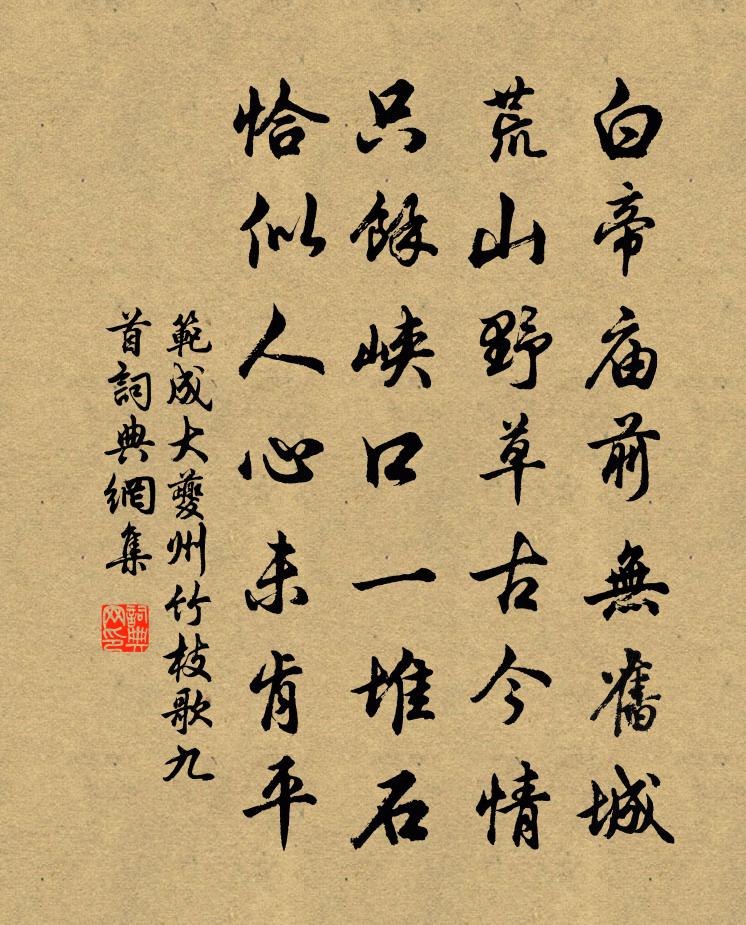 白帝庙前無舊城
荒山野草古今情
只餘峽口一堆石
恰似人心未肯平
範成大夔州竹枝歌九
首詞典網集
詞典
网印